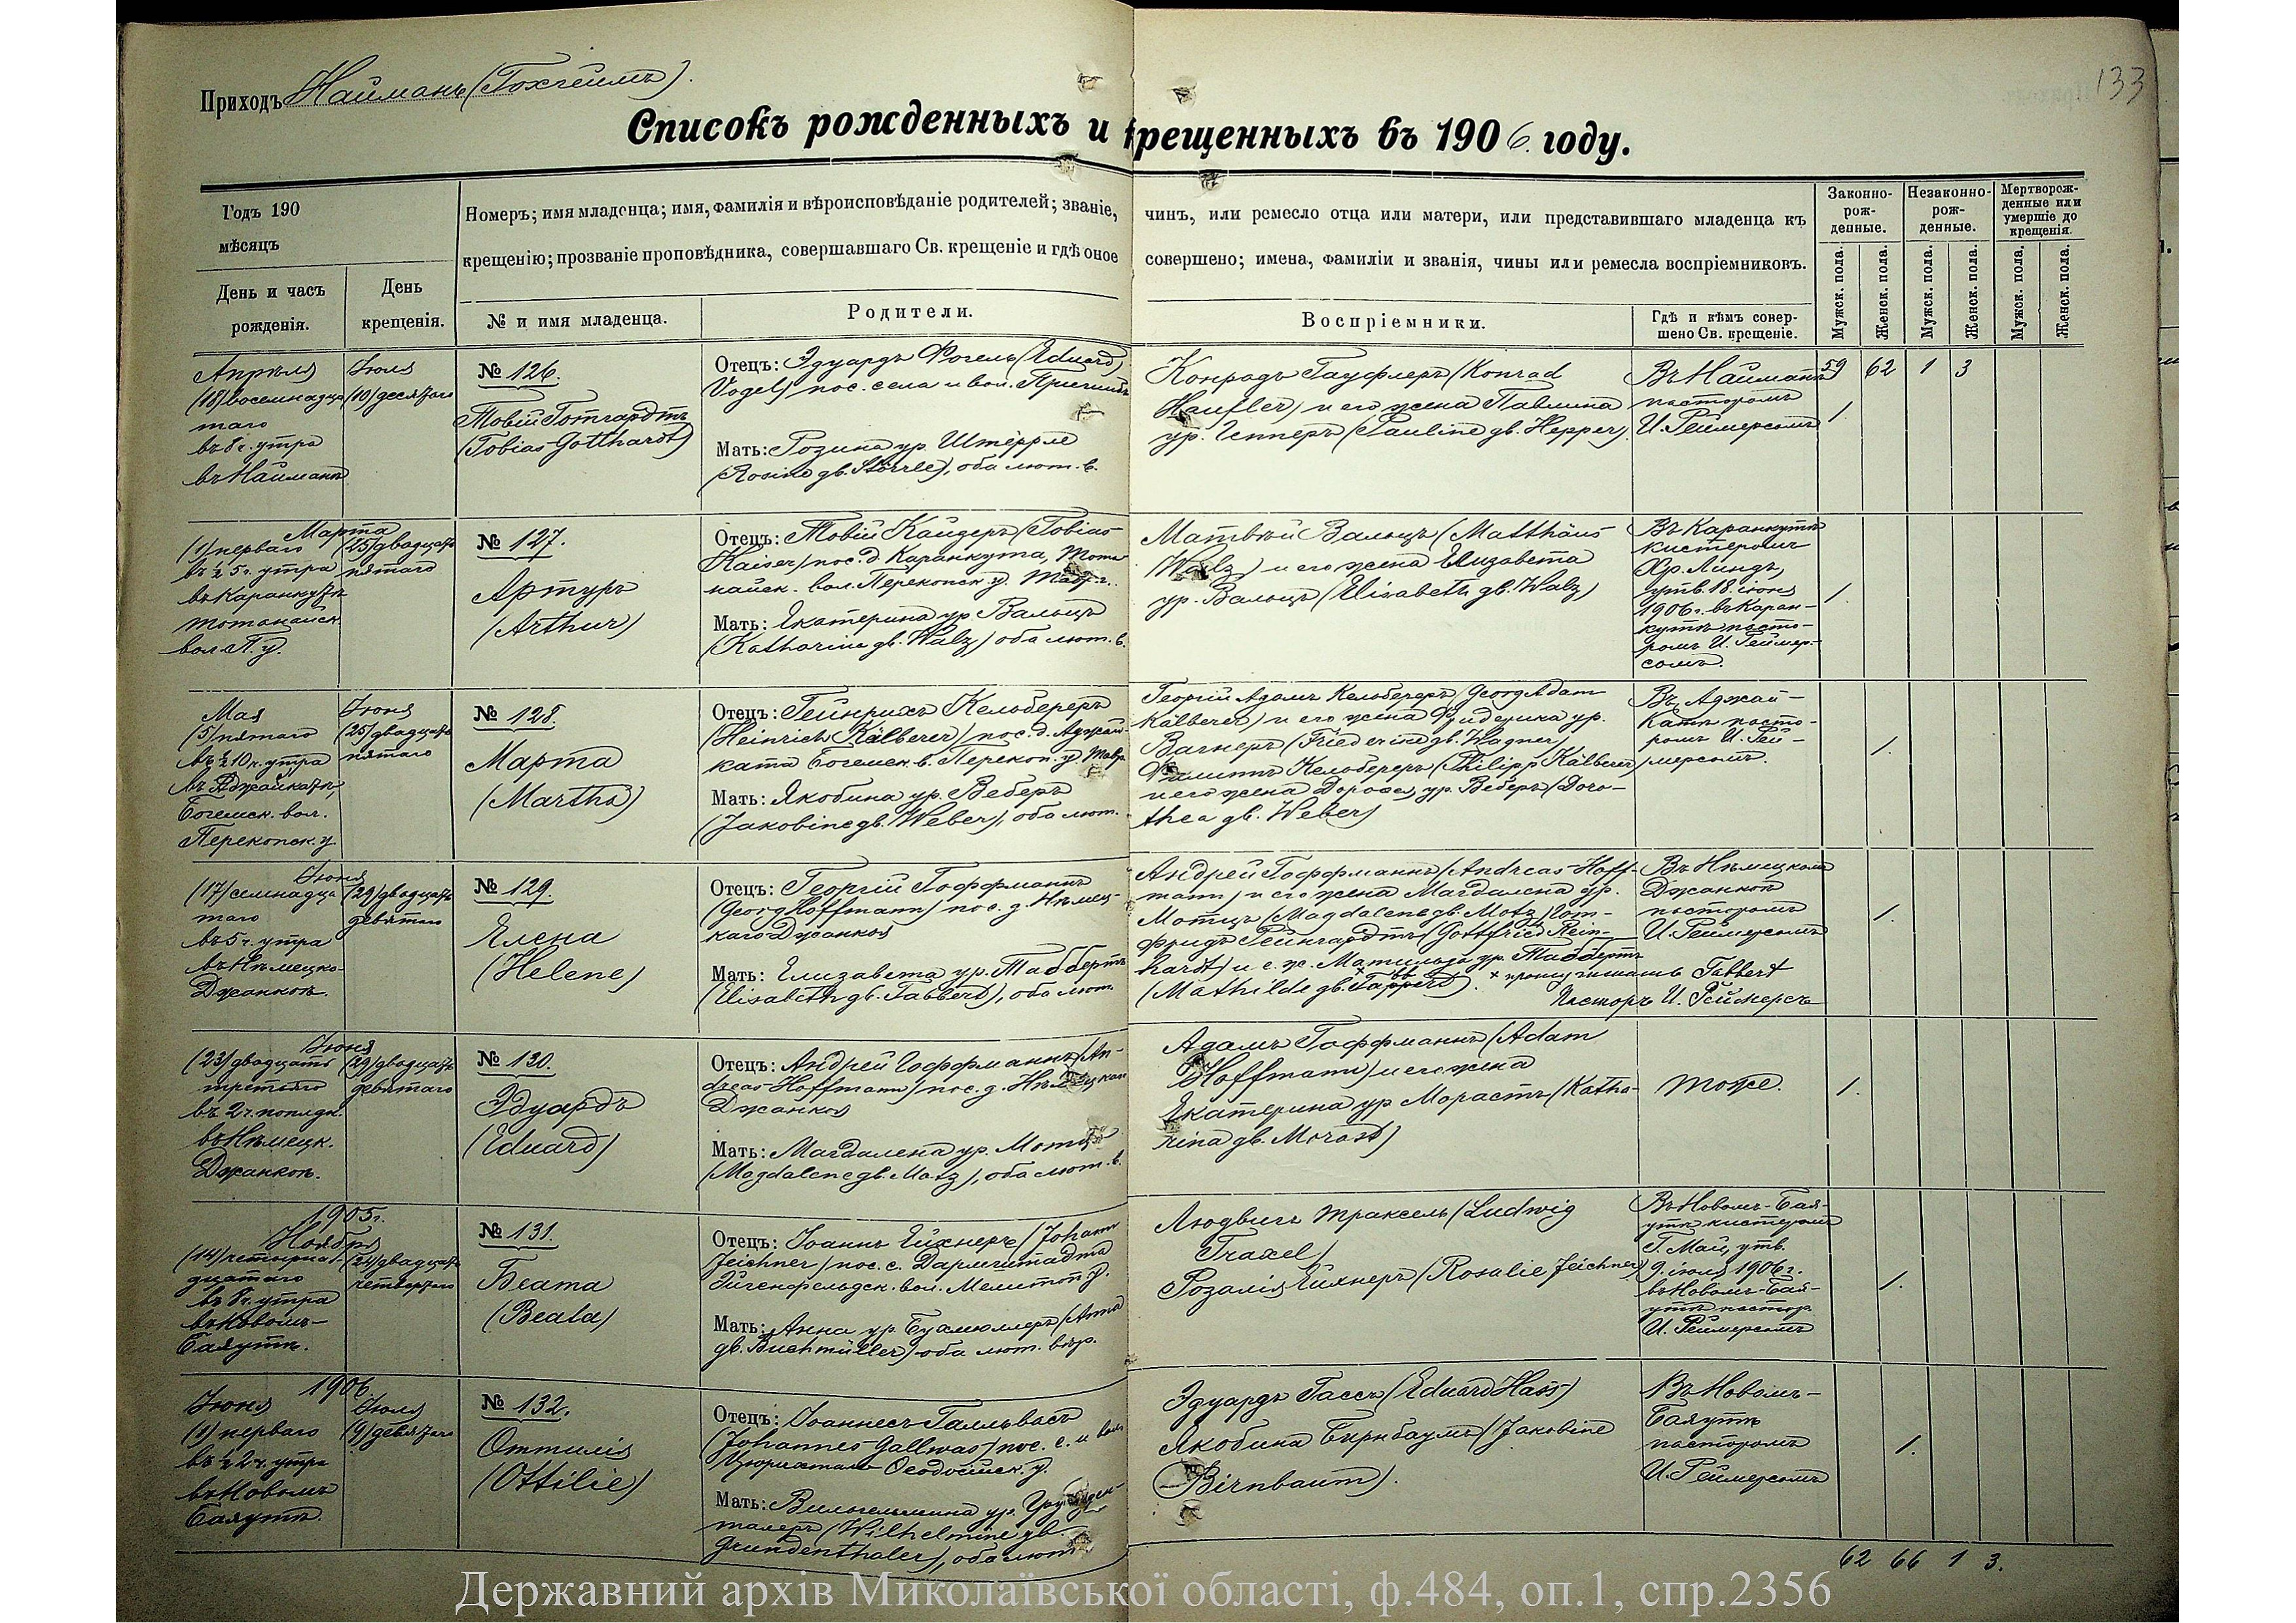 Приходъ Найманъ (Гохгеймъ).
133
Списокъ рожденныхъ и крещенныхъ въ 1906 году.
Годъ 190
мѣсяцъ
День и часъ рожденія.
День крещенія.
Номеръ; имя младенца; имя, фамилія и вѣроисповѣданіе родителей; званіе, чинъ, или ремесло отца или матери, или представившаго младенца къ
крещенію; прозваніе проповѣдника, совершавшаго Св. крещеніе и гдѣ оное совершено; имена, фамиліи и званія, чины или ремесла воспріемниковъ.
№ и имя младенца.
Родители.
Воспріемники.
Гдѣ и кѣмъ совер-
шено Св. крещеніе.
Законно-
рож-
денные.
Незаконно-
рож-
денные.
Мертворож-
денные или
умершіе до
крещенія.
Мужск. пола.
Женск. пола.
Мужск. пола.
Женск. пола.
Мужск. пола.
Женск. пола.
Апрѣля
(18) восемнадца
таго
въ 8 ч. утра
въ Найманѣ
Іюля
(10) десятаго
№ 126.
Товій Готгардтъ
(Tobias Gotthardt)
Отецъ: Эдуардъ Фогель (Eduard
Vogel) пос. села и вол.
Мать: Розина ур. Штёррле
(Rosine gb. Störrle), оба лют. в.
Конрадъ Гауфлеръ (Konrad
Haufler) и его жена Павлина
ур. Гепперъ (Pauline gb. Hepper).
Въ Найманѣ
пасторомъ
И. Реймерсомъ
59 62 1 3
1.
Марта
(1) перваго
въ ½ 5 ч. утра
въ Каранкутѣ
Тотанайск.
вол. П. у.
(25) двадцать
пятаго
№ 127.
Артуръ
(Arthur)
Отецъ: Товій Кайзеръ (Tobias
Kaiser) пос. д. Каранкута, Тота
найск. вол. Перекопск. у. Тавр. г.
Мать: Екатерина ур. Вальцъ
(Katharina gb. Walz) оба лют. в.
Матвѣй Вальцъ (Matthäus
Walz) и его жена Елизавета
ур. Вальцъ (Elisabeth gb. Walz)
Въ Каранкутѣ
кистеромъ
Хр. Линдъ,
утв. 18. іюня
1906 г. въ Каран-
кутѣ пасто-
ромъ И. Реймер-
сомъ.
1.
Мая
(5) пятаго
въ ½ 10 ч. утра
въ Аджайкатѣ,
Богемск. вол.
Перекопск. у.
Іюня
(25) двадцать
пятаго
№ 128.
Марта
(Martha)
Отецъ: Гейнрихъ Кельбереръ
(Heinrich Kälberer) пос. д. Аджай-
ката Богемск. в. Перекоп. у. Тавр.
Мать: Якобина ур. Веберъ
(Jakobine gb. Weber), оба лют.
Георгій Адамъ Кельбереръ (Georg Adam
Kälberer) и его жена Фридерика ур.
Вагнеръ (Friederike gb. Wagner)
Филиппъ Кельбереръ (Philipp Kälberer)
и его жена Доротея, ур. Веберъ (Doro-
thea gb. Weber)
Въ Аджай-
катѣ пасто-
ромъ И. Рей-
мерсомъ.
1.
Іюня
(17) семнадца
таго
въ 5 ч. утра
въ Нѣмецко-
Джанкоѣ.
(29) двадцать
девятаго
№ 129.
Елена
(Helene)
Отецъ: Георгій Гоффманнъ
(Georg Hoffmann) пос. д. Нѣмец-
каго Джанкоя
Мать: Елизавета ур. Табберть
(Elisabeth gb. Tabbert), оба лют.
Андрей Гоффманнъ (Andreas Hoff-
mann) и его жена Магдалена ур.
Мотцъ (Magdalena gb. Motz) Гот-
фридъ Рейнгардтъ (Gottfried Rein-
hardt) и е. ж. Матильда ур. Таббертъ
(Mathilde gb. Tappert). × прошу читать Tabbert
Пасторъ И. Реймерсъ
Въ Нѣмецкомъ
Джанкоѣ
пасторомъ
И. Реймерсомъ
1.
Іюня
(23) двадцать
третьяго
въ 2 ч. пополдн.
въ Нѣмецк.
Джанкоѣ.
(29) двадцать
девятаго
№ 130.
Эдуардъ
(Eduard)
Отецъ: Андрей Гоффманнъ (An-
dreas Hoffmann) пос. д. Нѣмецкаго
Джанкоя
Мать: Магдалена ур. Мотцъ
(Magdalene gb. Motz), оба лют. в.
Адамъ Гоффманнъ (Adam
Hoffmann) и его жена
Екатерина ур. Морастъ (Katha-
rina gb. Morast)
Тоже.
1.
1905 г.
Ноября
(14) четырна-
дцатаго
въ 8 ч. утра
въ Новомъ-
Баяутѣ.
(24) двадцать
четвертаго
№ 131.
Беата
(Beata)
Отецъ: Іоаннъ Ейхнеръ (Johann
Jeichner) пос. с. Дармштадта
Эйгенфельдск. вол. Мелитоп. у.
Мать: Анна ур. Бухмюллеръ (Anna
gb. Buchmüller) оба лют. вѣр.
Людвигъ Траксель (Ludwig
Traxel)
Розалія Ейхнеръ (Rosalie Jeichner)
Въ Новомъ-Бая-
утѣ кистеромъ
Г. Май, утв.
9. іюля 1906 г.
въ Новомъ-Бая-
утѣ пастор.
И. Реймерсомъ
1.
1906
Іюня
(1) перваго
въ ½ 2 ч. утра
въ Новомъ
Баяутѣ.
Іюля
(9) девятаго
№ 132.
Оттилія
(Ottilie)
Отецъ: Іоаннесъ Галльвасъ
(Johannes Gallwas) пос. с. и вол.
Цюрихталь Ѳеодосійск. у.
Мать: Вильгельмина ур. Грунден-
талеръ (Wilhelmine gb.
Grundenthaler), оба лют.
Эдуардъ Гассъ (Eduard Hass)
Якобина Бирнбаумъ (Jakobine
Birnbaum).
Въ Новомъ-
Баяутѣ
пасторомъ
И. Реймерсомъ
1.
62 66 1 3.
Державний архів Миколаївської області, ф.484, оп.1, спр.2356